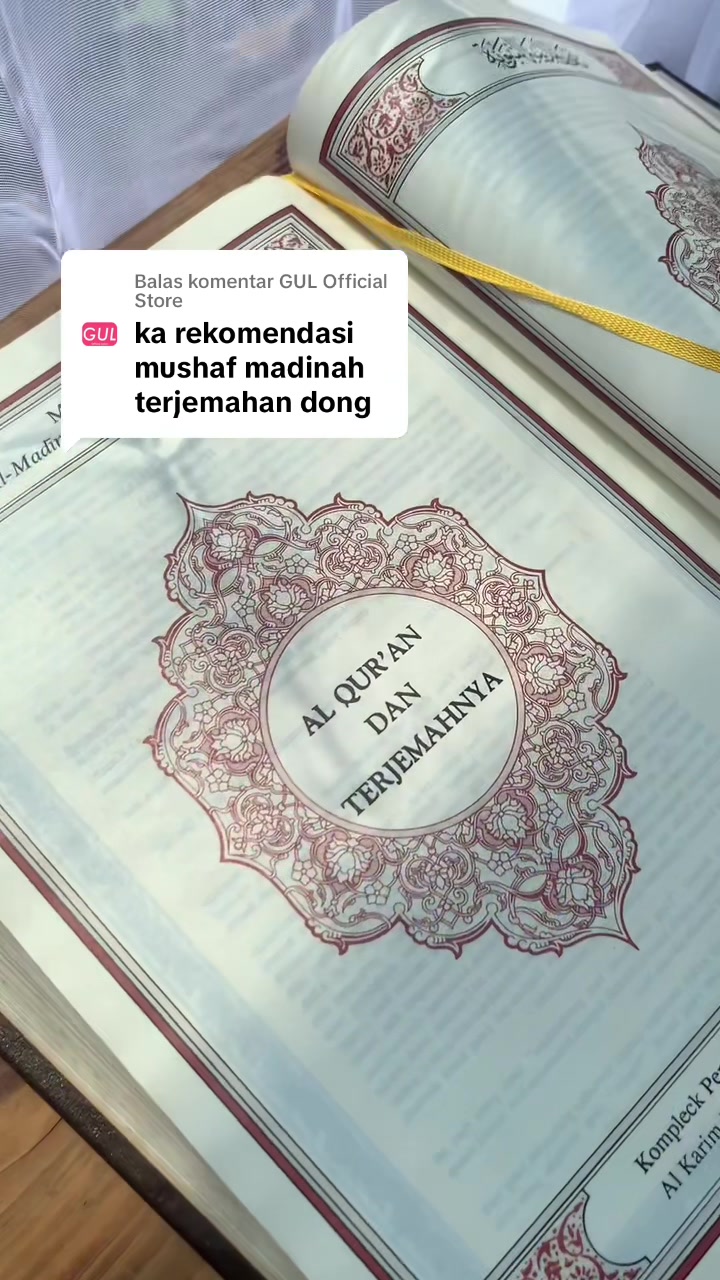 Balas komentar GUL Official
Store
GUL
ka rekomendasi
mushaf madinah
terjemahan dong
AL QUR'AN
DAN
TERJEMAHNYA
Kompleck
Al Karim